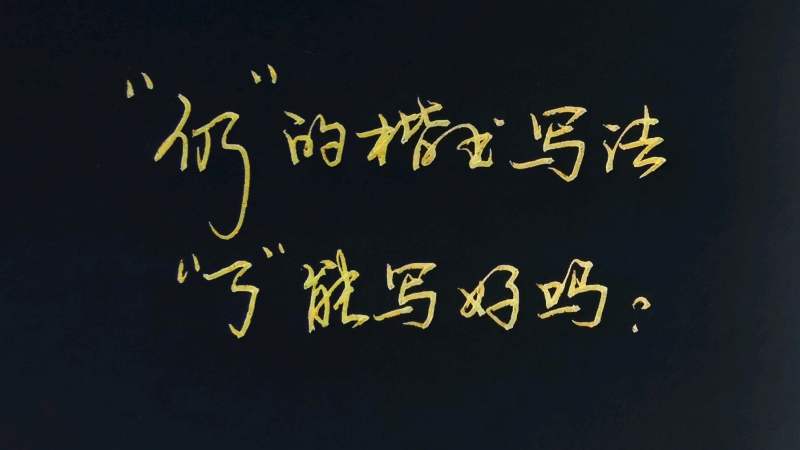 “仍”的楷书写法
“㇡”能写好吗？